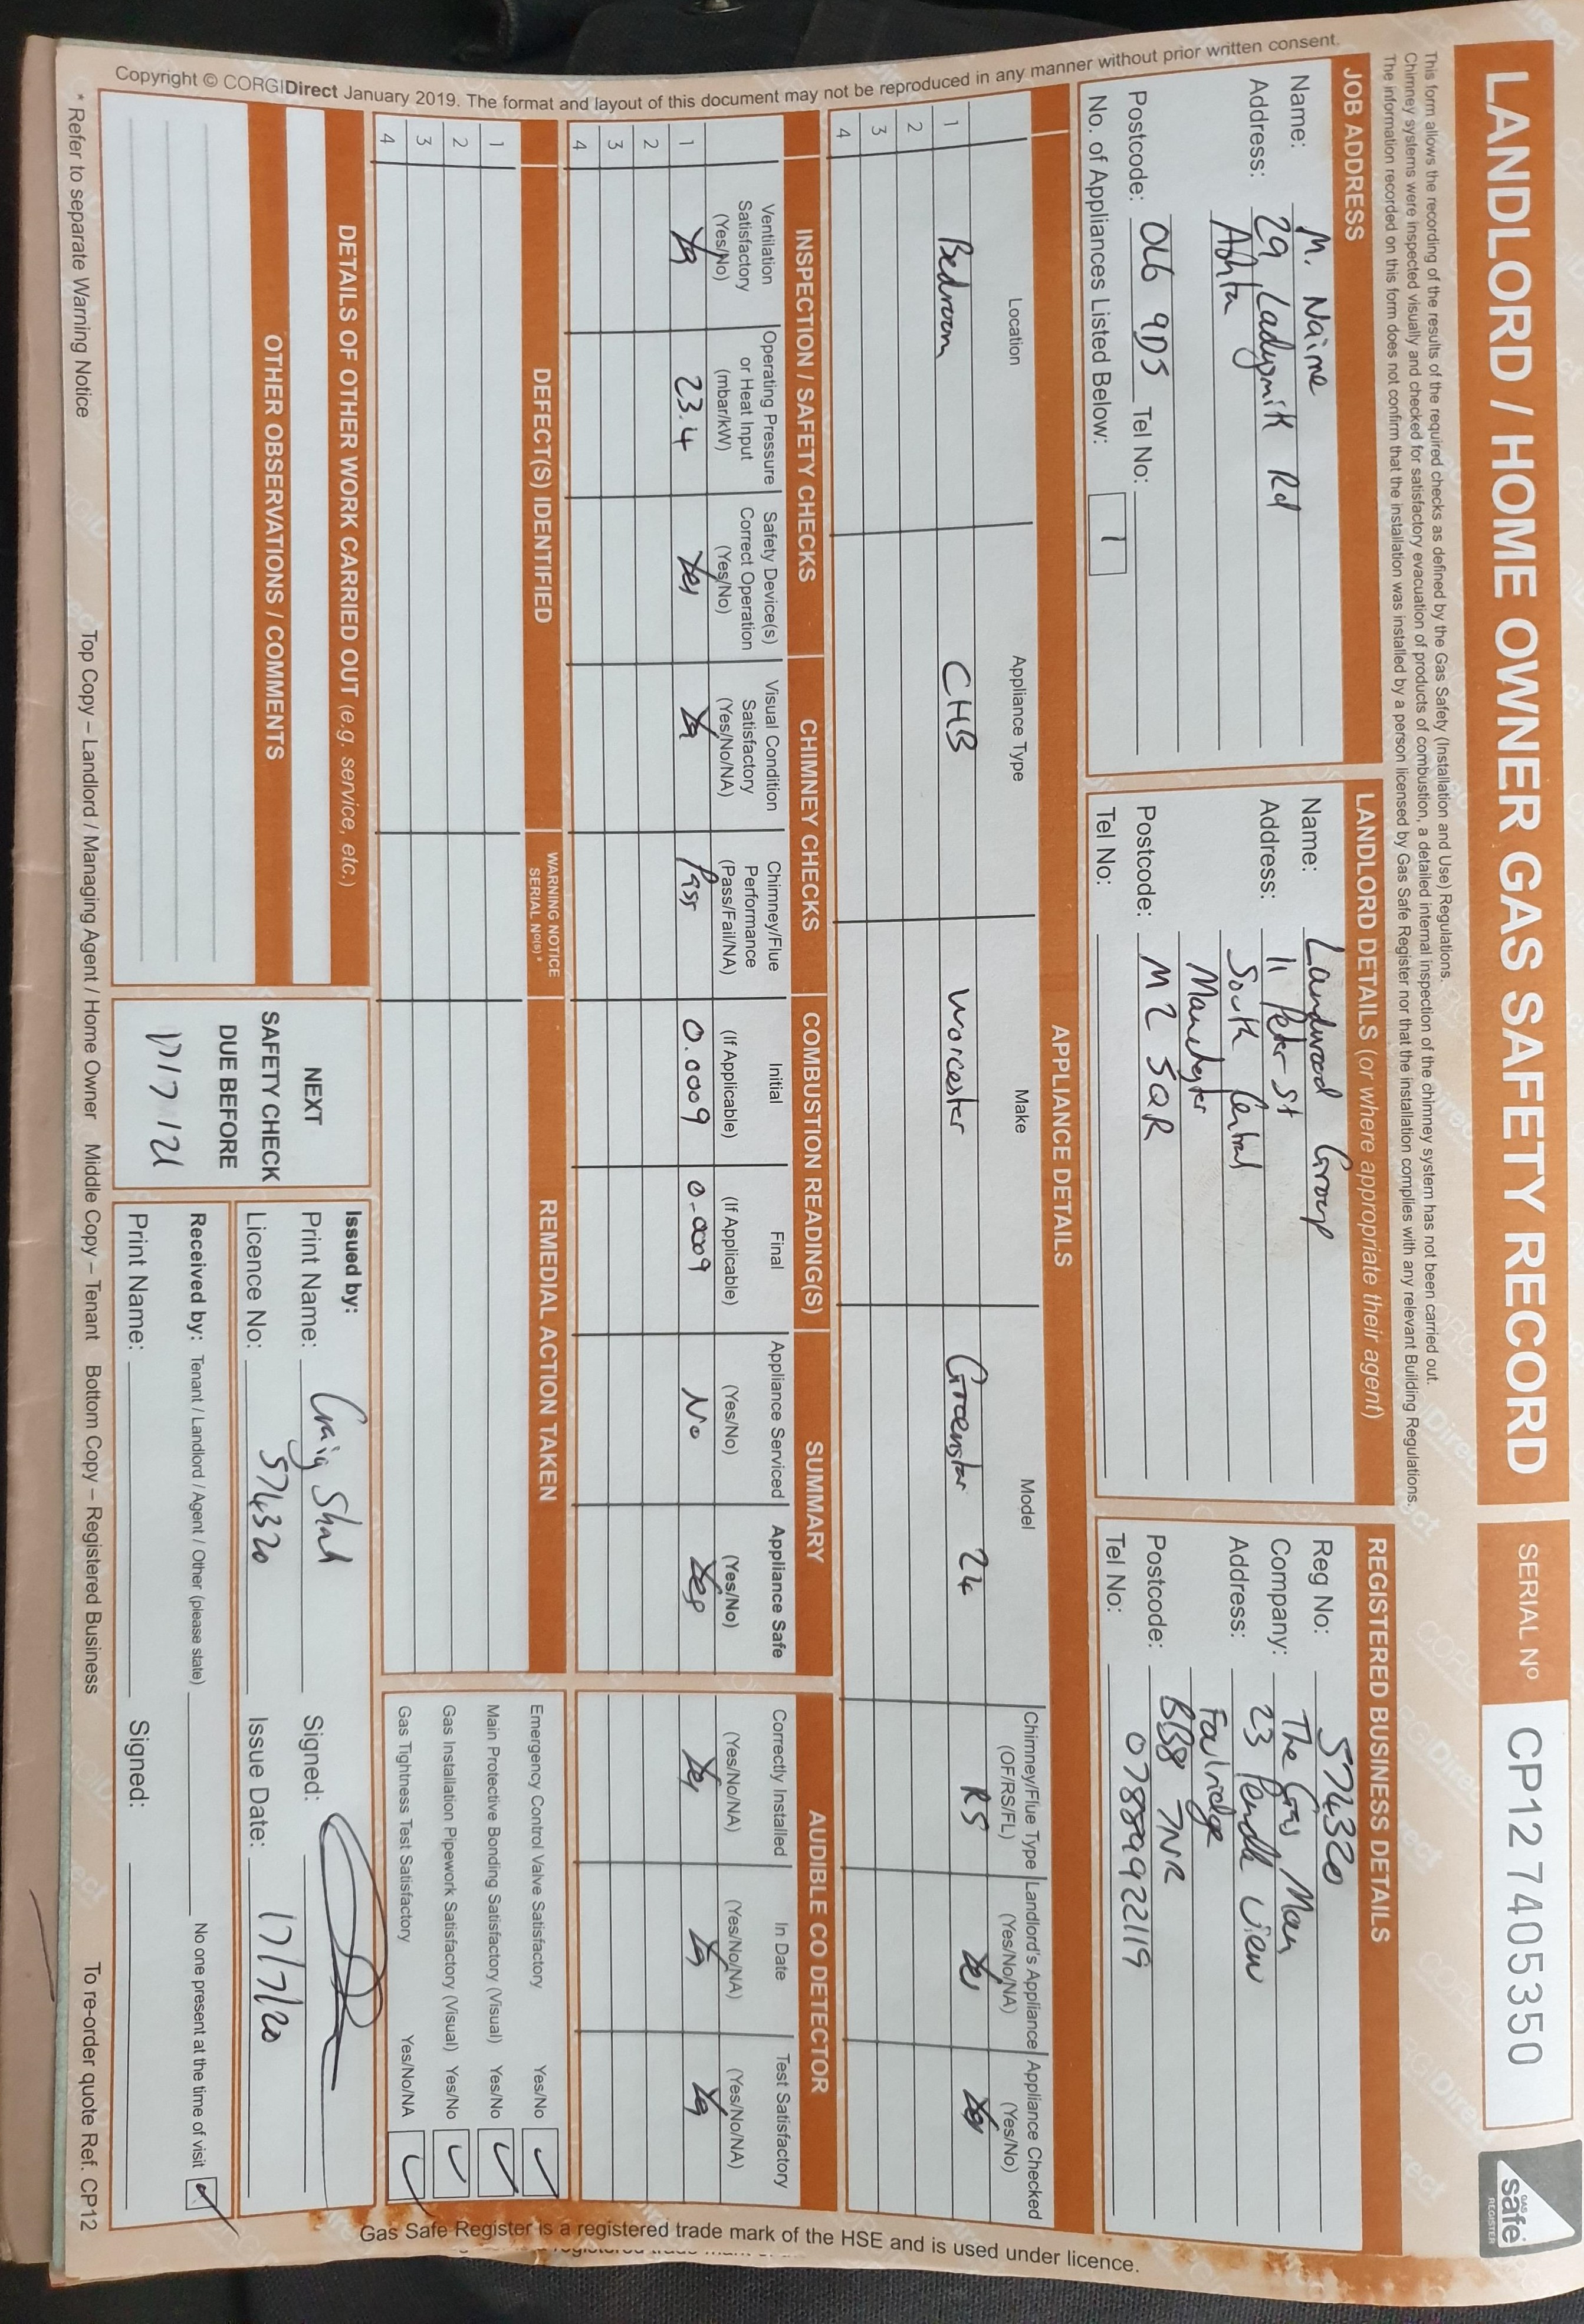 LANDLORD / HOME OWNER GAS SAFETY RECORD
SERIAL Nº CP12 7405350
GAS safe REGISTER
This form allows the recording of the results of the required checks as defined by the Gas Safety (Installation and Use) Regulations.
Chimney systems were inspected visually and checked for satisfactory evacuation of products of combustion, a detailed internal inspection of the chimney system has not been carried out.
The information recorded on this form does not confirm that the installation was installed by a person licensed by Gas Safe Register nor that the installation complies with any relevant Building Regulations.
JOB ADDRESS
Name: M. Naime
Address: 29 Rd
Postcode: OL6 9DS Tel No:
No. of Appliances Listed Below: 1
LANDLORD DETAILS (or where appropriate their agent)
Name: Landwood Group
Address: 11 Peter St
South Central
Manchester
Postcode: M2 5QR
Tel No:
REGISTERED BUSINESS DETAILS
Reg No: 574320
Company: The Gas Man
Address: 23 Pendle View
Foulridge
Postcode: BB8 7NR
Tel No: 07889922119
APPLIANCE DETAILS
Location Appliance Type Make Model Chimney/Flue Type (OF/RS/FL) Landlord's Appliance (Yes/No/NA) Appliance Checked (Yes/No)
1 Bedroom CHB Worcester Greenstar 24 RS Yes Yes
2
3
4
INSPECTION / SAFETY CHECKS CHIMNEY CHECKS COMBUSTION READING(S) SUMMARY AUDIBLE CO DETECTOR
Ventilation Satisfactory (Yes/No) Operating Pressure or Heat Input (mbar/kW) Safety Device(s) Correct Operation (Yes/No) Visual Condition Satisfactory (Yes/No/NA) Chimney/Flue Performance (Pass/Fail/NA) Initial (If Applicable) Final (If Applicable) Appliance Serviced (Yes/No) Appliance Safe (Yes/No) Correctly Installed (Yes/No/NA) In Date (Yes/No/NA) Test Satisfactory (Yes/No/NA)
1 Yes 23.4 Yes Yes Pass 0.0009 0.0009 No Yes Yes Yes Yes
2
3
4
DEFECT(S) IDENTIFIED WARNING NOTICE SERIAL Nº(S)* REMEDIAL ACTION TAKEN
1
2
3
4
Emergency Control Valve Satisfactory Yes/No ✓
Main Protective Bonding Satisfactory (Visual) Yes/No ✓
Gas Installation Pipework Satisfactory (Visual) Yes/No ✓
Gas Tightness Test Satisfactory Yes/No/NA ✓
DETAILS OF OTHER WORK CARRIED OUT (e.g. service, etc.)
OTHER OBSERVATIONS / COMMENTS
NEXT
SAFETY CHECK
DUE BEFORE
17/7/21
Issued by:
Print Name: Craig Signed:
Licence No: 574320 Issue Date: 17/7/20
Received by: Tenant / Landlord / Agent / Other (please state) No one present at the time of visit ✓
Print Name: Signed:
* Refer to separate Warning Notice
Top Copy – Landlord / Managing Agent / Home Owner Middle Copy – Tenant Bottom Copy – Registered Business
To re-order quote Ref. CP12
Copyright © CORGIDirect January 2019. The format and layout of this document may not be reproduced in any manner without prior written consent.
Gas Safe Register is a registered trade mark of the HSE and is used under licence.